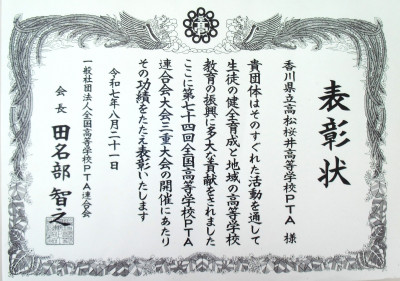 表彰状
香川県立高松桜井高等学校PTA 様
貴団体はそのすぐれた活動を通して
生徒の健全育成と地域の高等学校
教育の振興に多大な貢献をされました
ここに第七十四回全国高等学校PTA
連合会大会三重大会の開催にあたり
その功績をたたえ表彰いたします
令和七年八月二十一日
一般社団法人全国高等学校PTA連合会
会長 田名部 智之